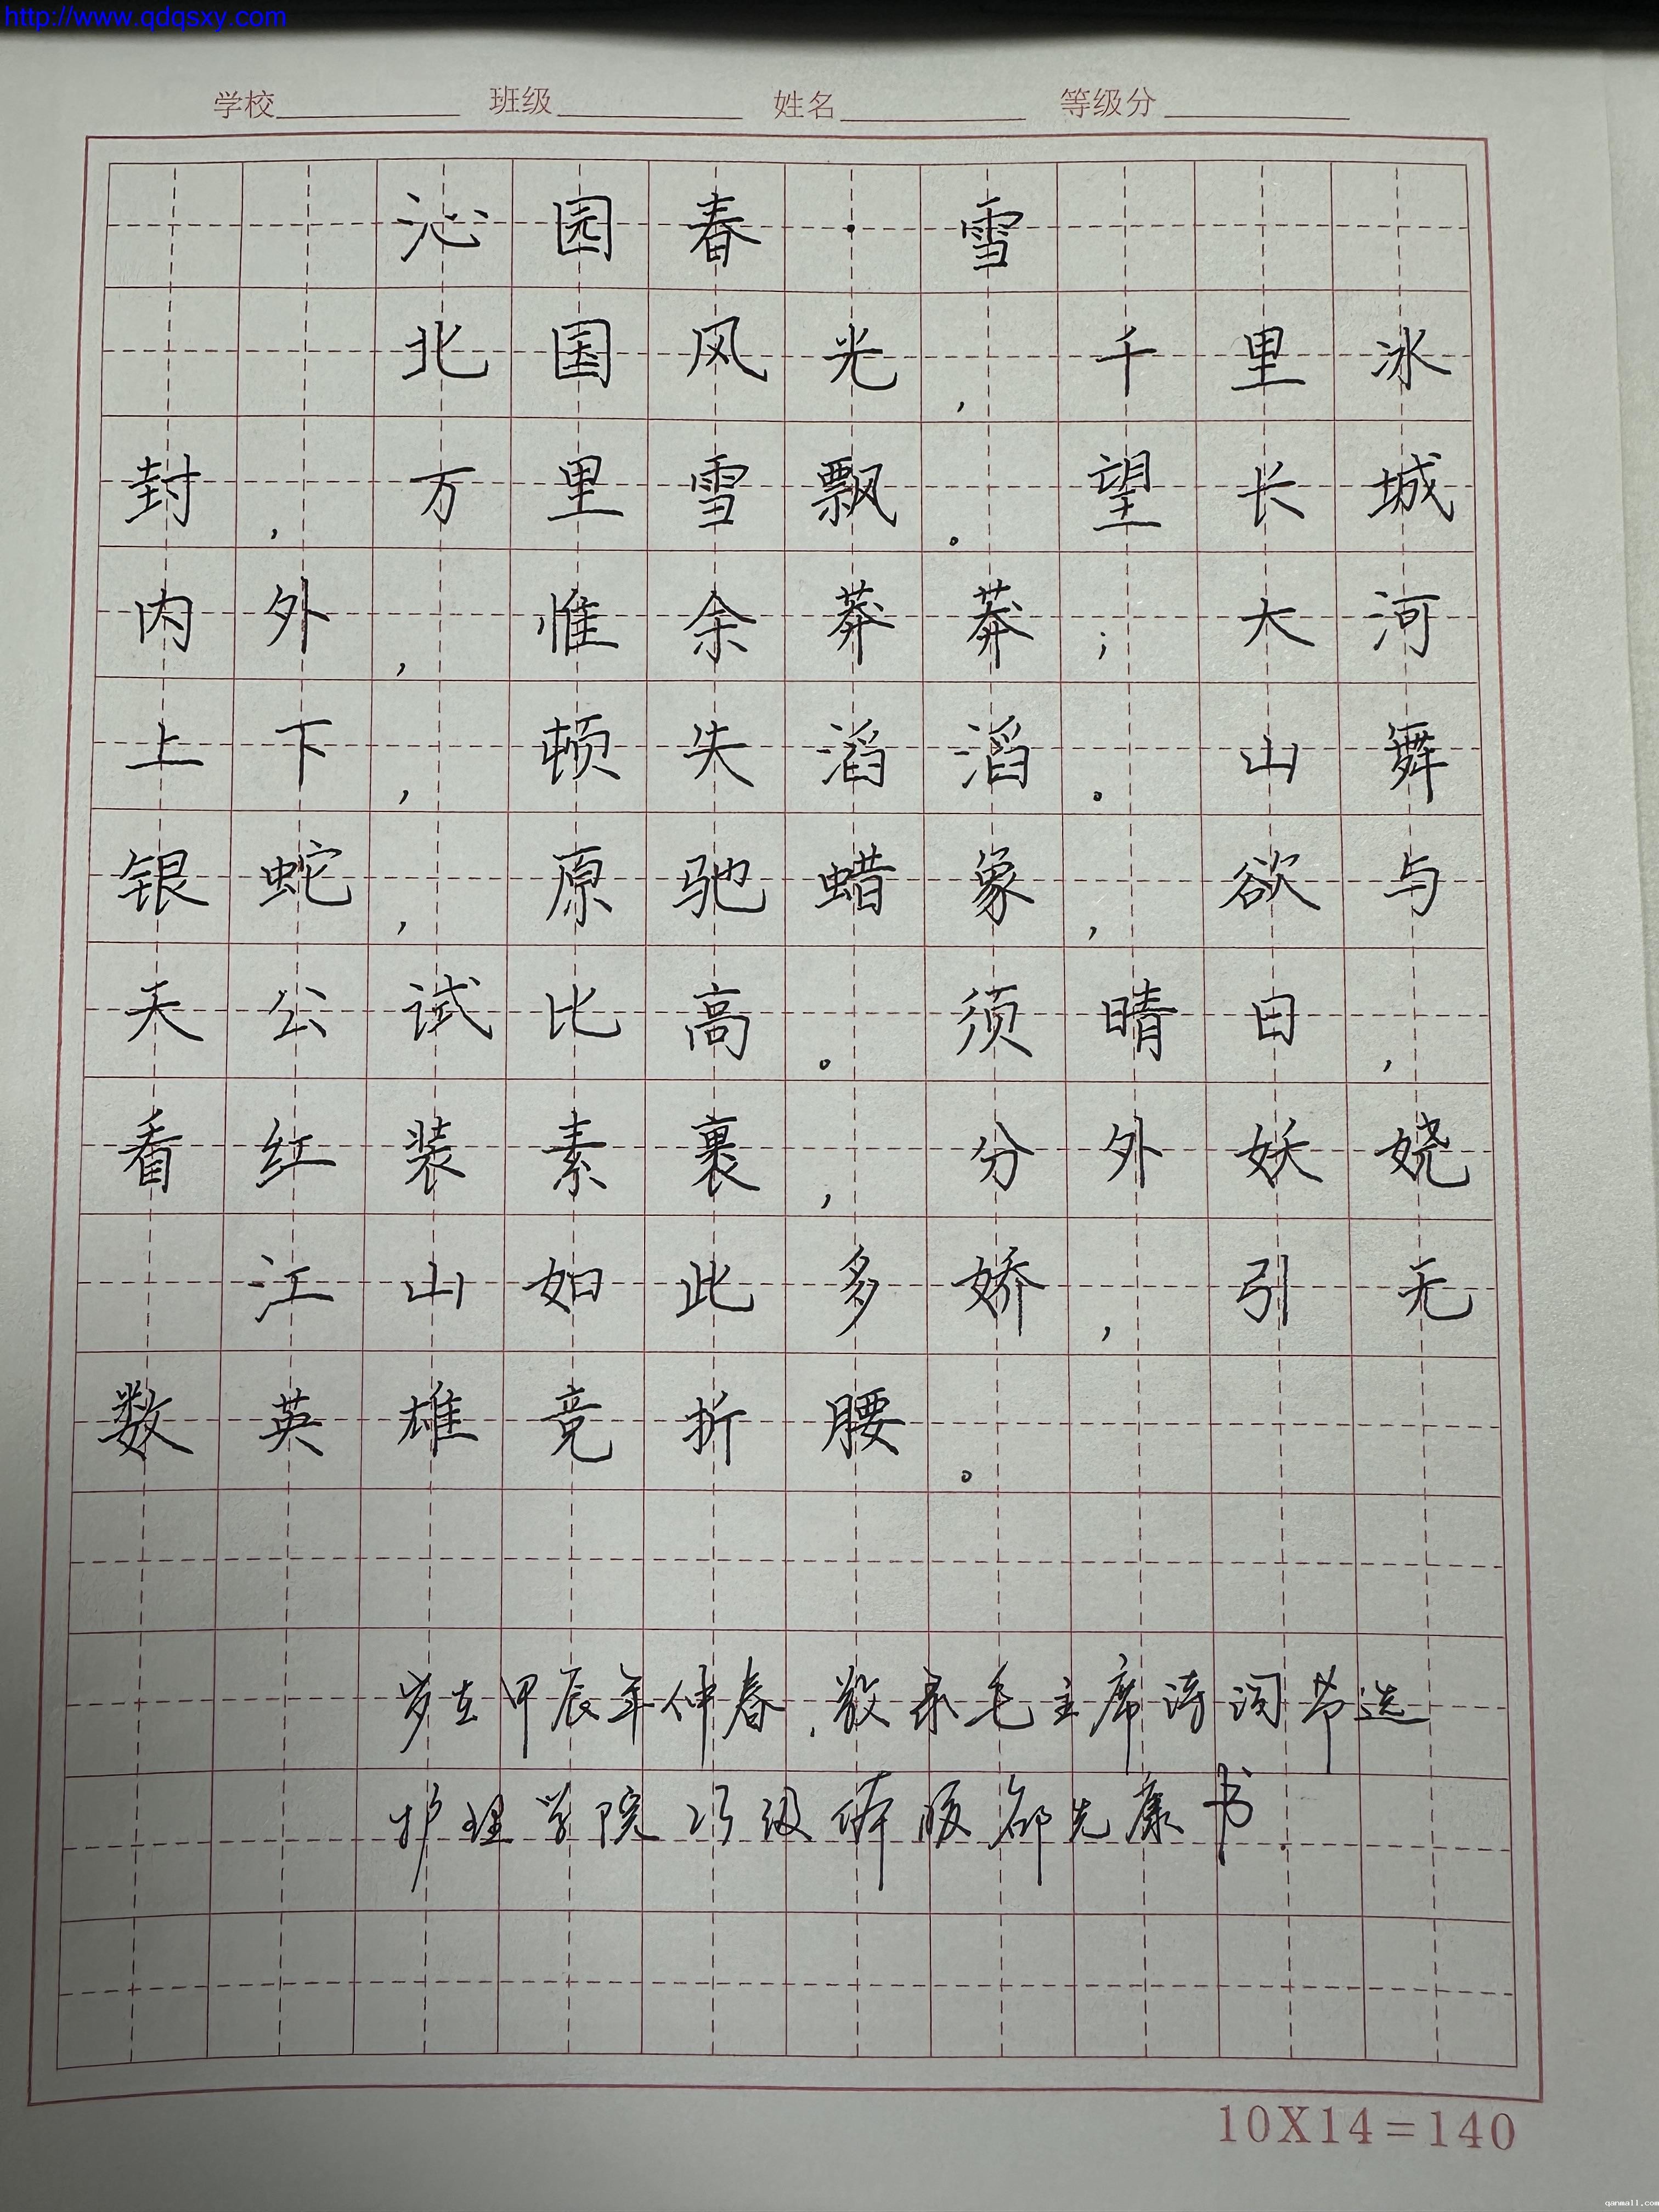 http://www.qdqsxy.com
学校 班级 姓名 等级分
沁园春·雪
北国风光,千里冰
封,万里雪飘。望长城
内外,惟余莽莽;大河
上下,顿失滔滔。山舞
银蛇,原驰蜡象,欲与
天公试比高。须晴日,
看红装素裹,分外妖娆
江山如此多娇,引无
数英雄竞折腰。
岁在甲辰年仲春,敬录毛主席诗词节选
护理学院 级 邵先康书.
10X14=140
qanmall.com